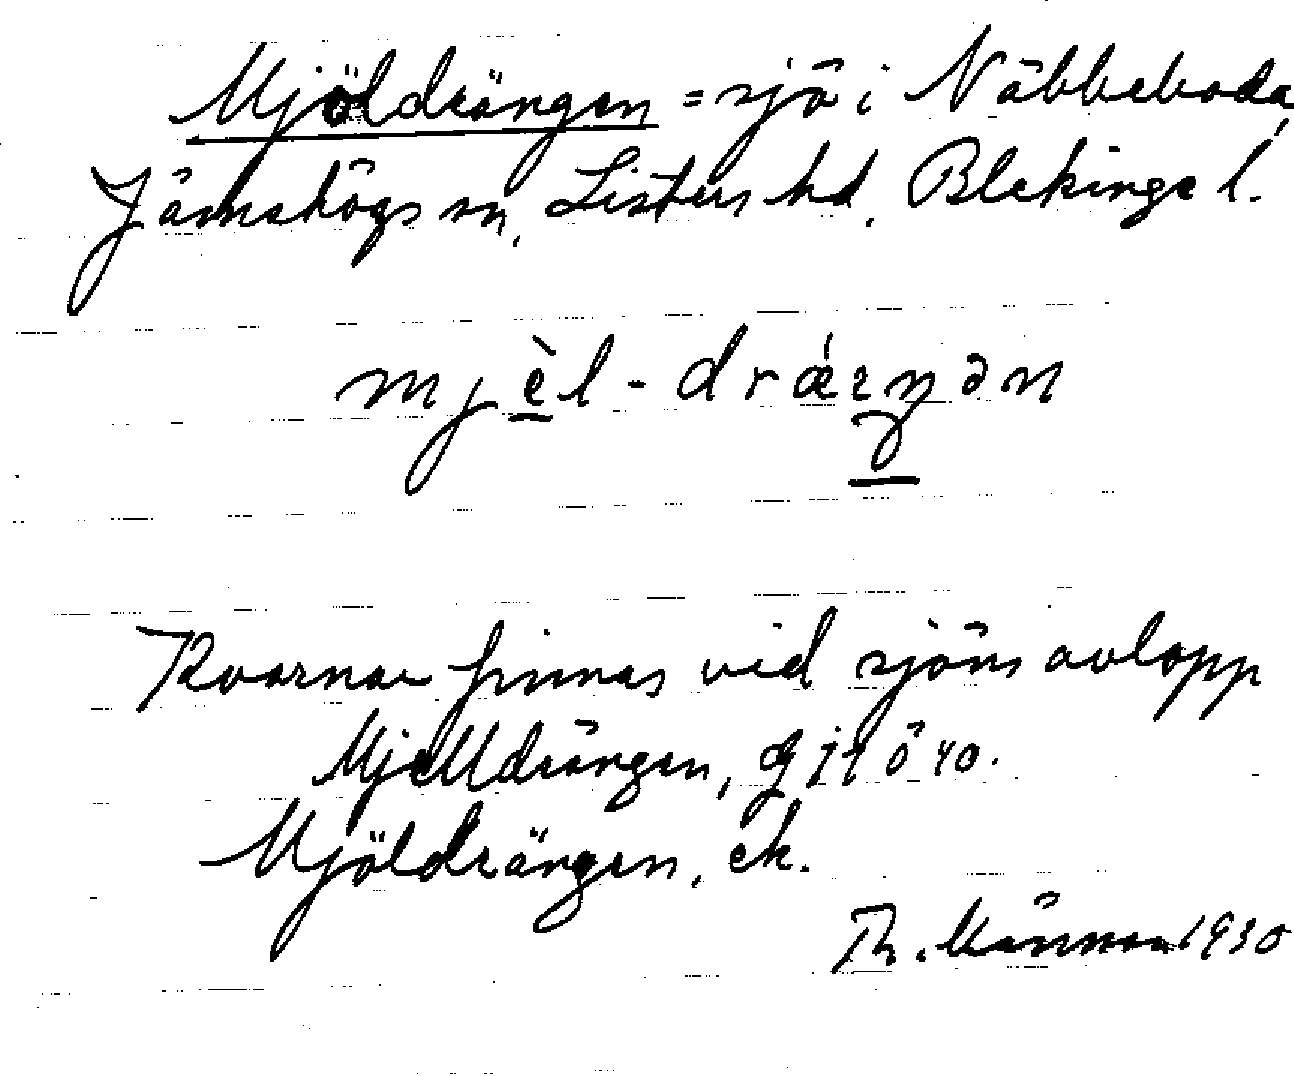 Mjöldrängen = sjö i Näbbeboda,
Jämshögs sn, Listers hd, Blekinge l.
mjèl-drǽŋən
Kvarnar finnas vid sjöns avlopp
Mjelldrängen, 1 Ö 40.
Mjöldrängen, ek.
Th. 1930